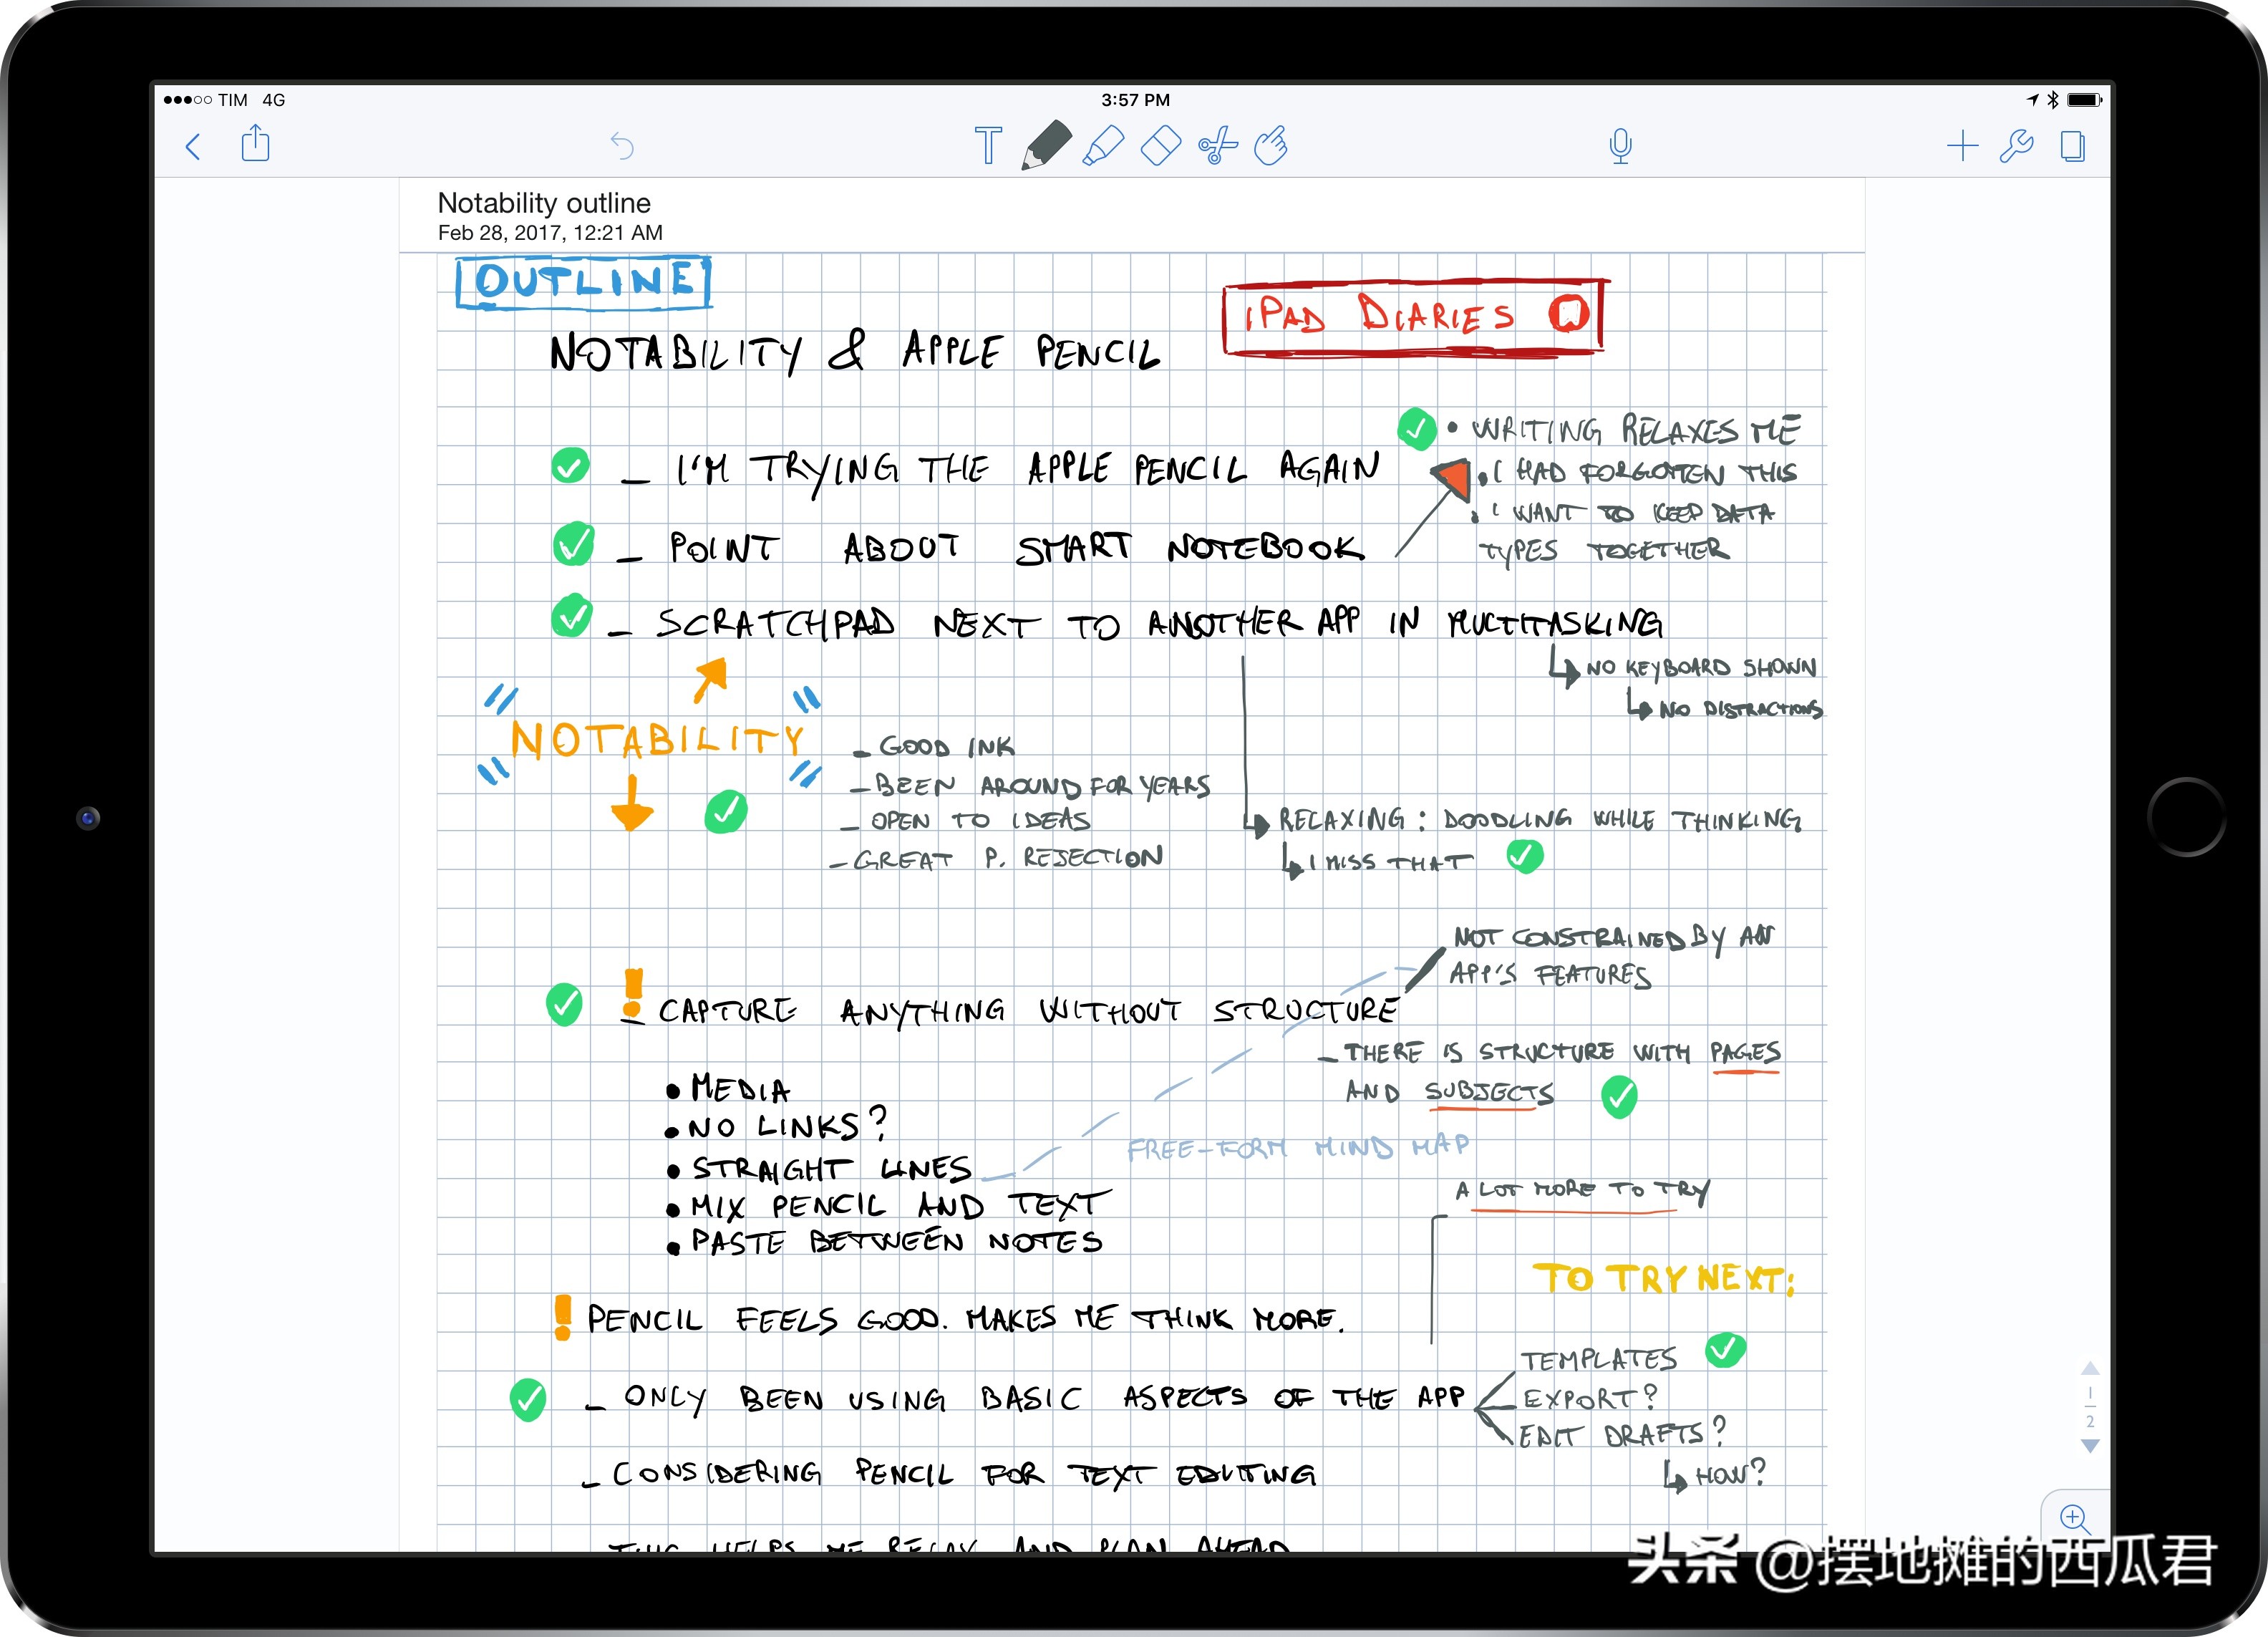 TIM 4G
3:57 PM
T
Notability outline
Feb 28, 2017, 12:21 AM
OUTLINE
iPAD DIARIES
NOTABILITY & APPLE PENCIL
• WRITING RELAXES ME
– I'M TRYING THE APPLE PENCIL AGAIN
• I HAD FORGOTTEN THIS
• I WANT TO KEEP DATA
TYPES TOGETHER
– POINT ABOUT SMART NOTEBOOK
– SCRATCHPAD NEXT TO ANOTHER APP IN MULTITASKING
NO KEYBOARD SHOWN
NO DISTRACTIONS
NOTABILITY
– GOOD INK
– BEEN AROUND FOR YEARS
– OPEN TO IDEAS
– GREAT P. REJECTION
RELAXING: DOODLING WHILE THINKING
I MISS THAT
NOT CONSTRAINED BY AN
APP'S FEATURES
! – CAPTURE ANYTHING WITHOUT STRUCTURE
– THERE IS STRUCTURE WITH PAGES
AND SUBJECTS
• MEDIA
• NO LINKS?
• STRAIGHT LINES
• MIX PENCIL AND TEXT
• PASTE BETWEEN NOTES
FREE-FORM MIND MAP
A LOT MORE TO TRY
TO TRY NEXT:
! PENCIL FEELS GOOD. MAKES ME THINK MORE.
– ONLY BEEN USING BASIC ASPECTS OF THE APP
TEMPLATES
EXPORT?
EDIT DRAFTS?
HOW?
– CONSIDERING PENCIL FOR TEXT EDITING
THIS HELPS ME RELAX AND PLAN AHEAD
1
2
头条 @摆地摊的西瓜君